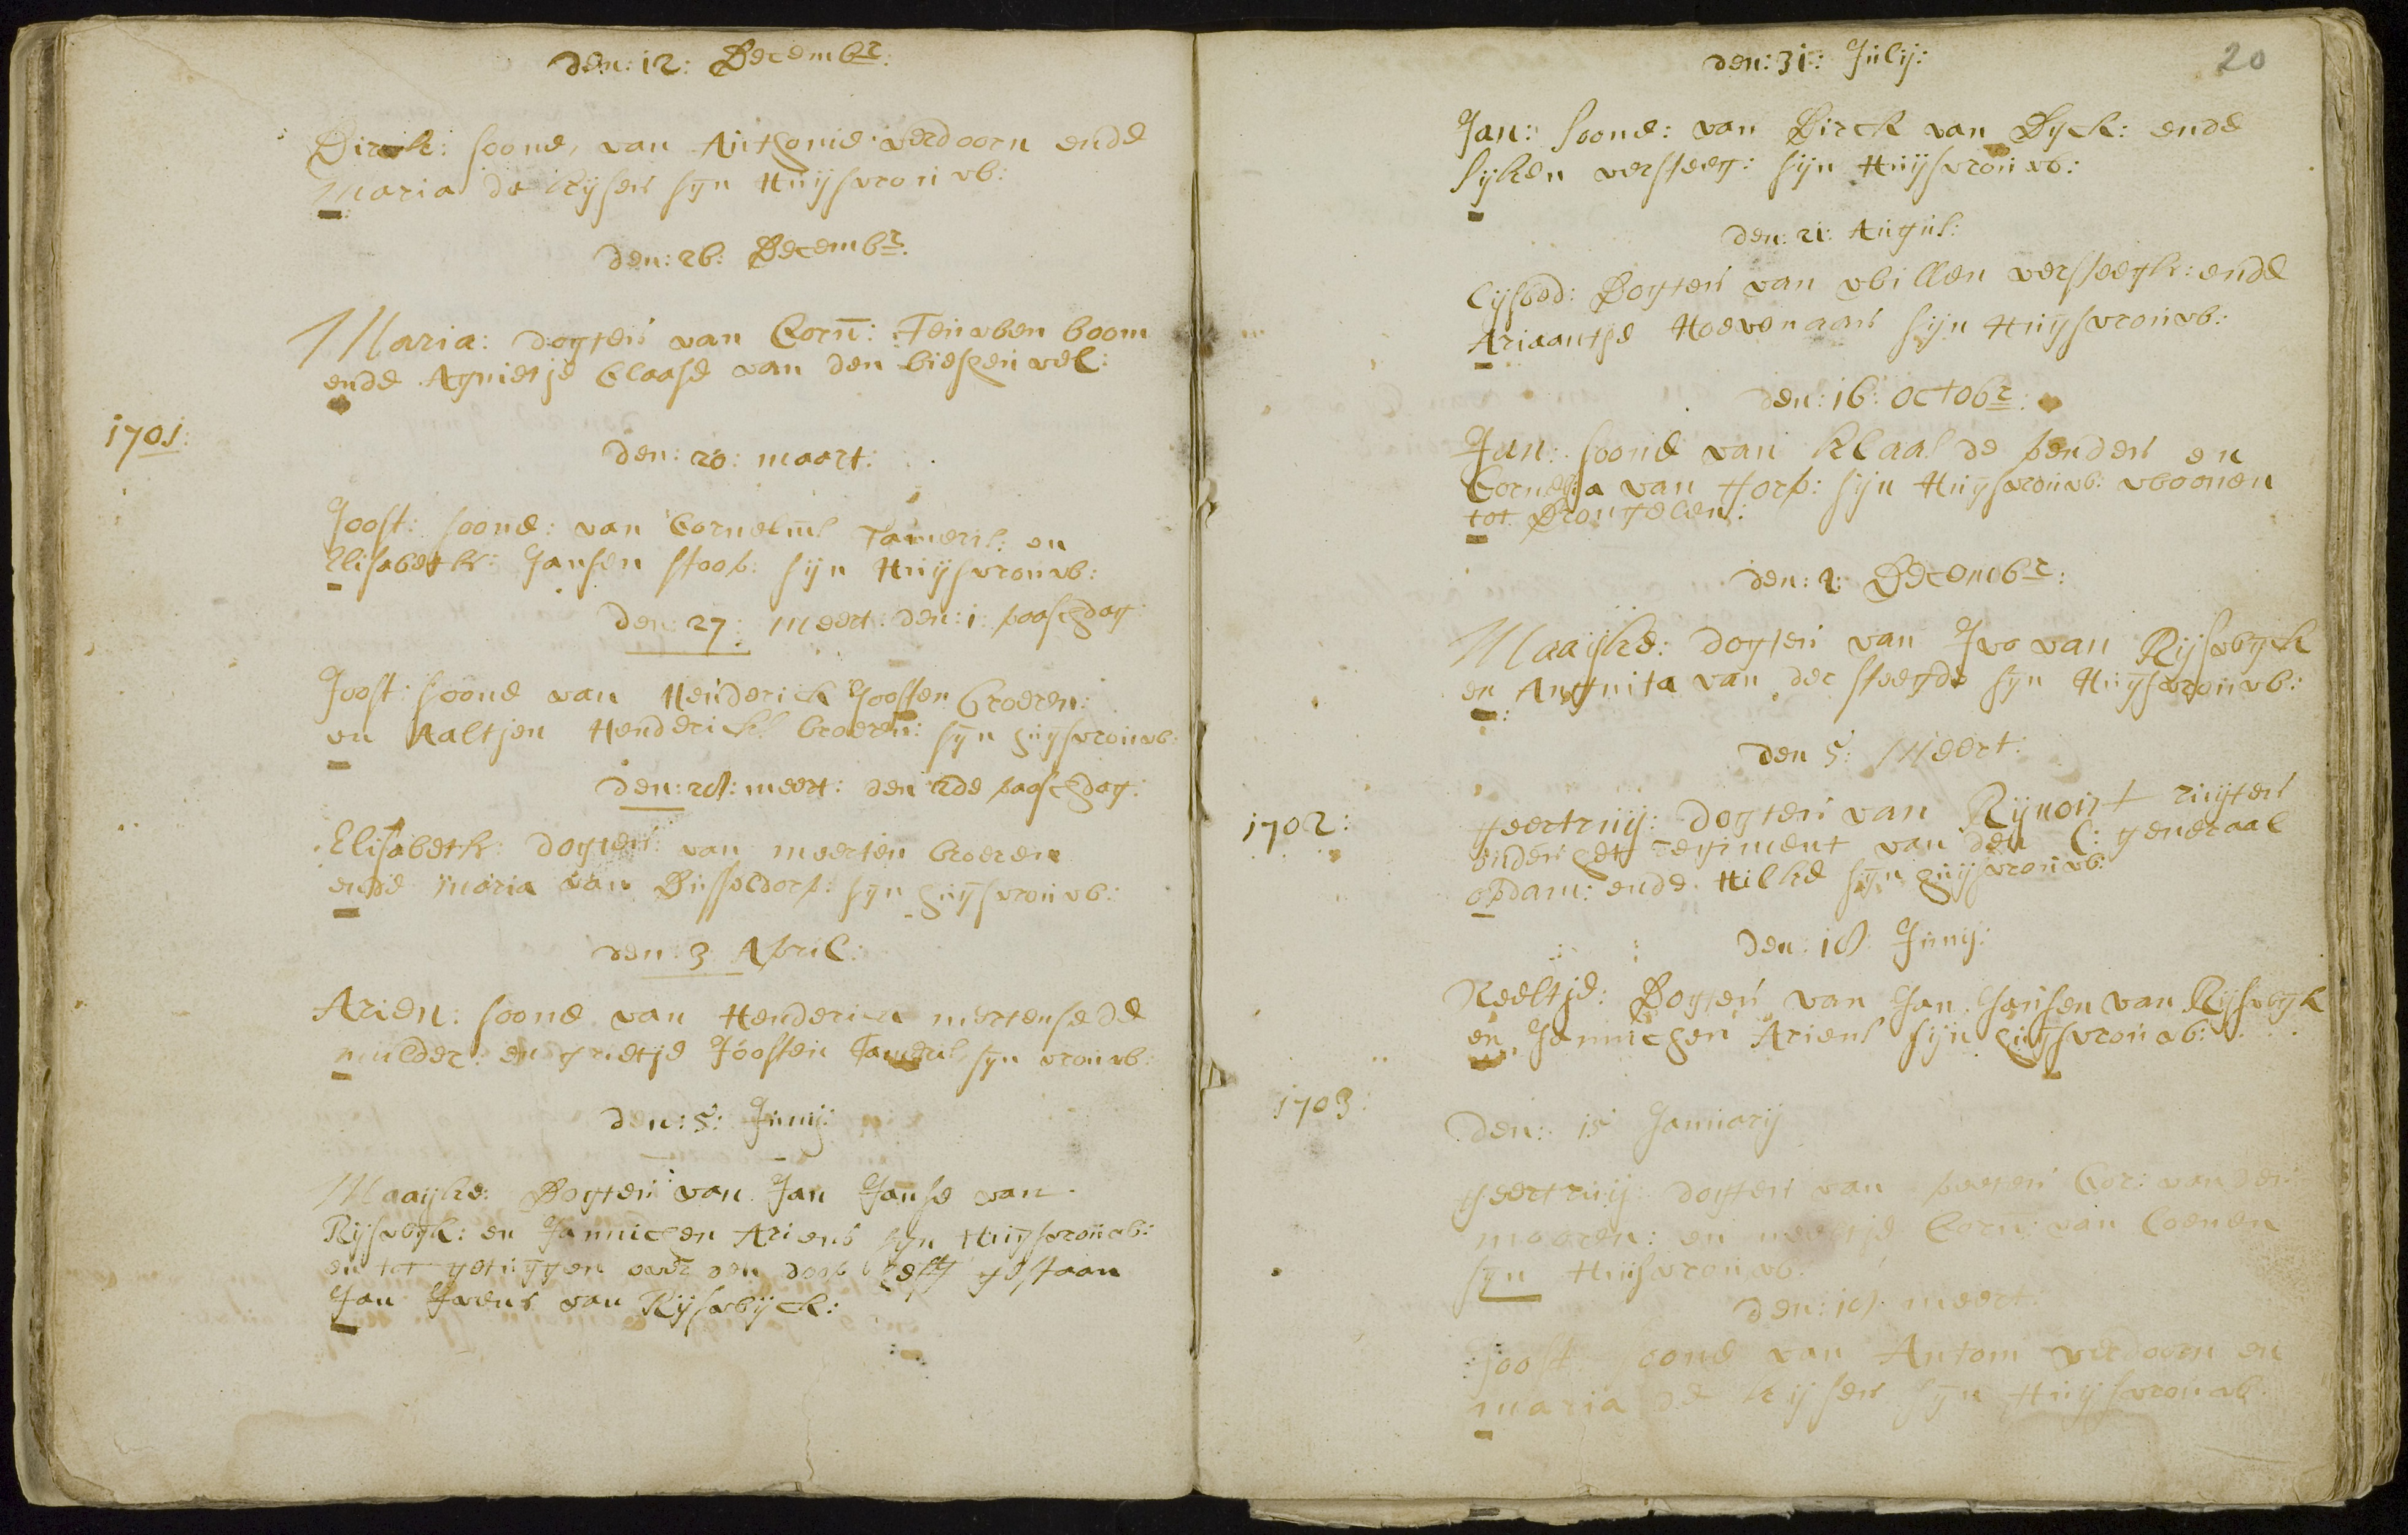 den: 12: Decembr:
Dirck: soone, van Anthonie verdoorn ende
Maria de Kijser sijn Huijsvrouw:
den: 26: Decembr:
Maria: dogter van Corn: Teuwben boom
ende Agnietje Claase van den
1701:
den: 20: maart:
Joost: soone: van Cornelius Tameris: en
Elisabeth: Jansen stoop: sijn Huijsvrouw:
den: 27: Meert: den: 1: paaschdag
Joost: soone van Henderick Joosten Broeren:
en Aaltjen Hendericks broeren: sijn huijsvrouw:
den: 28: meert: den 2de paaschdag:
Elisabeth: dogter: van meerten broeren
ende maria van Dusseldorp: sijn huijsvrouw:
den: 3 April:
Arien: soone van Henderick mertense de
mulder: en grietje Joosten Tameris sijn vrouw:
den: 5: Junij:
Maayke: Dogter van Jan Janse van
Rijswijk: en Jannichen Ariens sijn Huijsvrouw:
en tot getuijgen over den doop heeft gestaan
Jan Ivens van Rijswijck:
20
den: 31: Julij:
Jan: soone: van Dirck van Dijck: ende
Sijken versteeg: sijn Huijsvrouw:
den: 21: Augus:
Lijsbed: Dogter van willen versteegh: ende
Ariaantje Hoevenaars sijn Huijsvrouw:
den: 16: Octobr:
Jan: soone van Klaas de penders en
Cornelia van Horp: sijn Huijsvrouw: woonen
tot Drongelen:
den: 2: Decembr:
Maaijke: dogter van Ivo van Rijswijck
en Angnita van der steegde sijn Huijsvrouw:
den 5: Meert:
1702:
geertruij: dogter van Rijnoist ruijter
onder het regiment van den l: generaal
opdam: ende Hilke sijn huijsvrouw:
den: 18: Junij:
Neeltje: Dogter van Jan Jansen van Rijswijk
en Jannichen Ariens sijn huijsvrouw:
1703:
Den: 15 Januarij
geertruij: dogter van peeter Cor: van der
maaren: en meerije Corn: van Coenen
sijn Huijsvrouw
den: 18: meert:
Joost soone van Antoni verdoorn en
maria de Kijser sijn Huijsvrouw